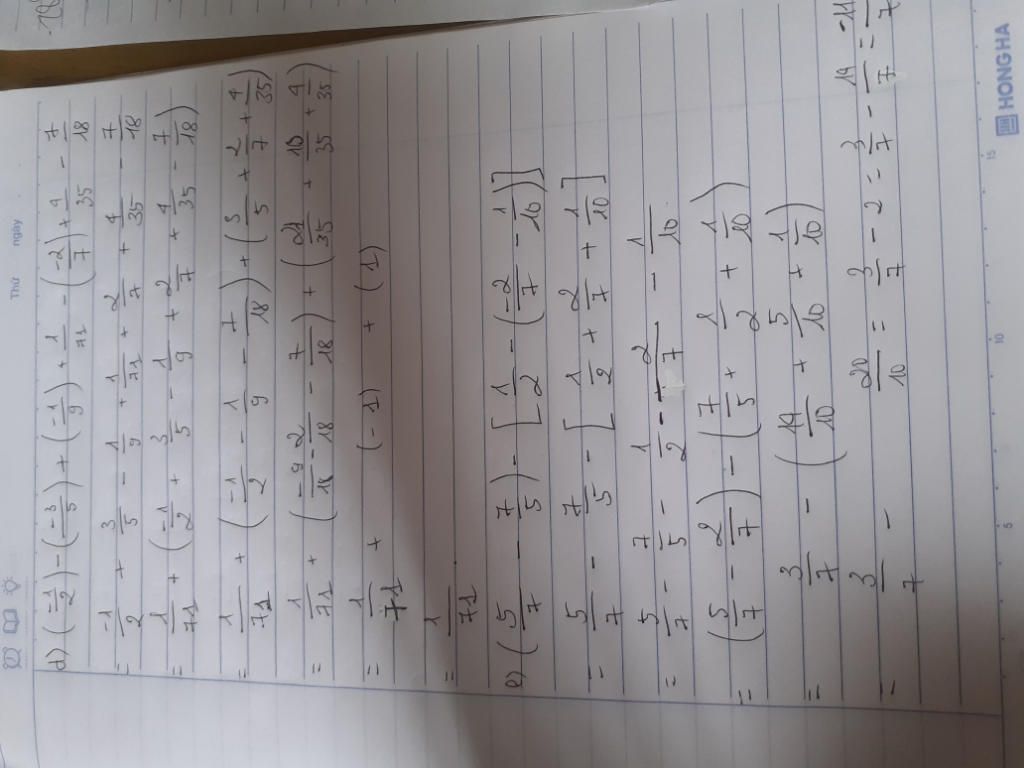 Thứ
ngày
d) (-1/2) - (-3/5) + (-1/9) + 1/71 - (-2/7) + 4/35 - 7/18
= -1/2 + 3/5 - 1/9 + 1/71 + 2/7 + 4/35 - 7/18
= 1/71 + (-1/2 + 3/5 - 1/9 + 2/7 + 4/35 - 7/18)
= 1/71 + (-1/2 - 1/9 - 7/18) + (3/5 + 2/7 + 4/35)
= 1/71 + (-9/18 - 2/18 - 7/18) + (21/35 + 10/35 + 4/35)
= 1/71 + (-1) + (1)
= 1/71
e) (5/7 - 7/5) - [1/2 - (-2/7 - 1/10)]
= 5/7 - 7/5 - [1/2 + 2/7 + 1/10]
= 5/7 - 7/5 - 1/2 - 2/7 - 1/10
= (5/7 - 2/7) - (7/5 + 1/2 + 1/10)
= 3/7 - (14/10 + 5/10 + 1/10)
= 3/7 - 20/10 = 3/7 - 2 = 3/7 - 14/7 = -11/7
5 10 15
HONG HA